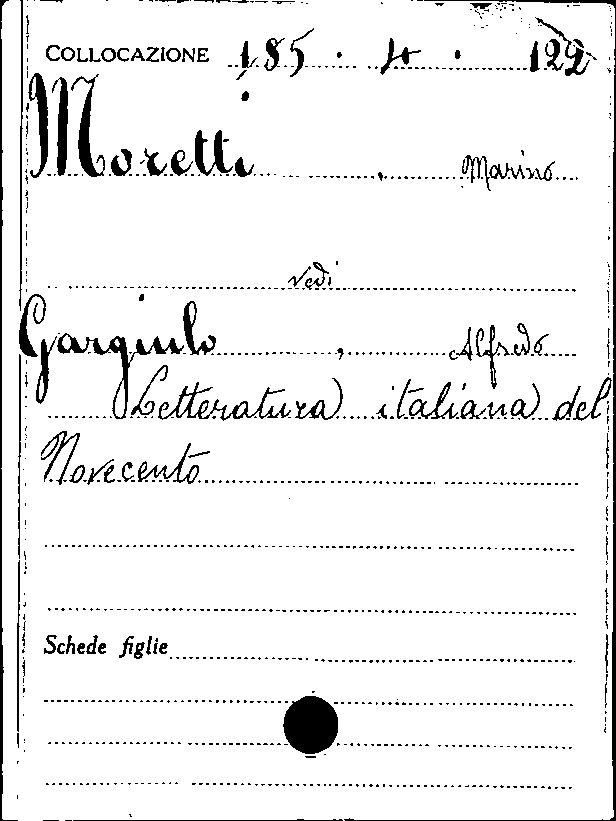 COLLOCAZIONE 185 · 4 · 122
Moretti, Marino
vedi
Gargiulo, Alfredo
Letteratura italiana del
Novecento
Schede figlie